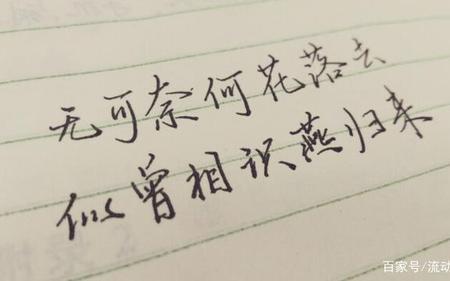 无可奈何花落去
似曾相识燕归来
百家号/流动